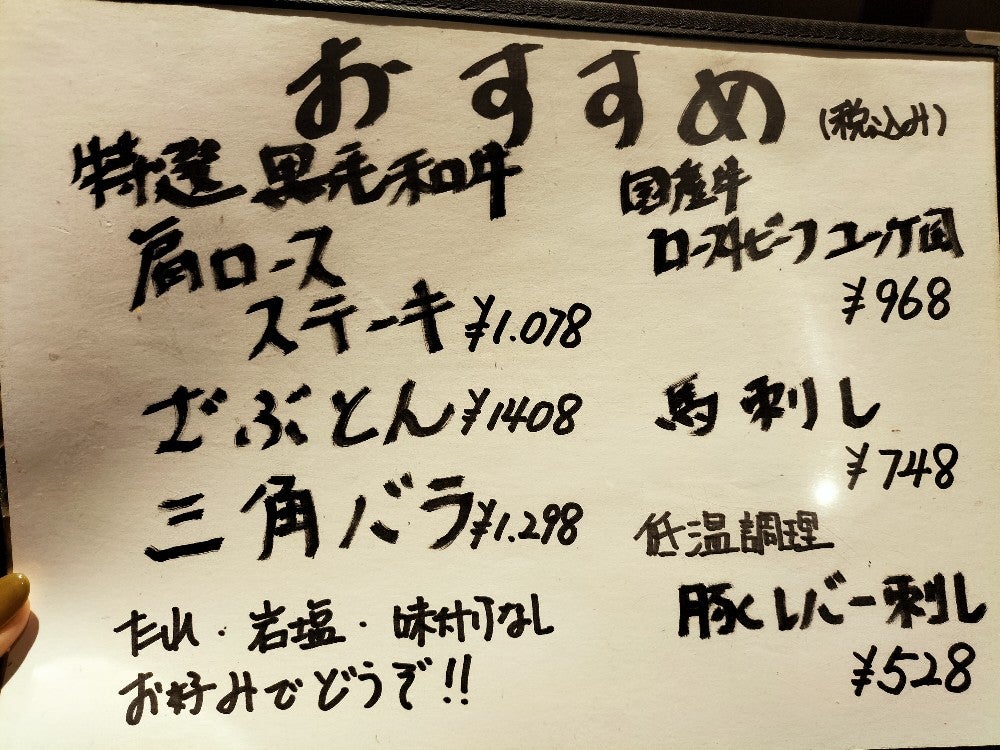 おすすめ (税込み)
特選 黒毛和牛
肩ロース
ステーキ ¥1.078
ざぶとん ¥1408
三角バラ ¥1.298
たれ・岩塩・味付けなし
お好みでどうぞ!!
国産牛
ローストビーフユッケ風
¥968
馬刺し
¥748
低温調理
豚レバー刺し
¥528